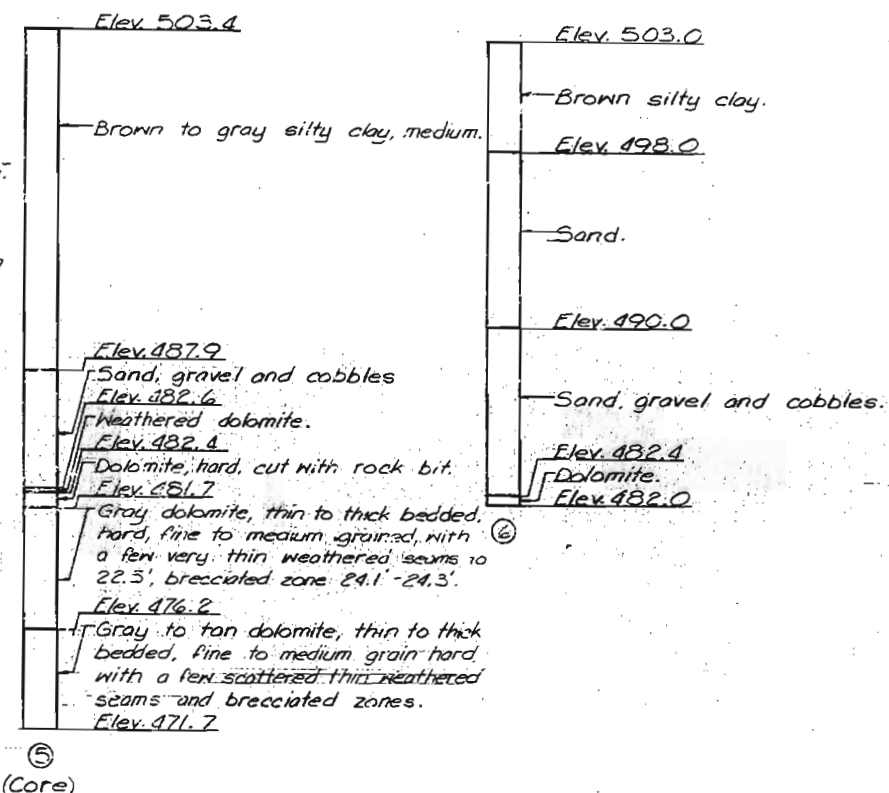 Elev. 503.4
Brown to gray silty clay, medium.
Elev. 487.9
Sand, gravel and cobbles
Elev. 482.6
Weathered dolomite.
Elev. 482.4
Dolomite, hard, cut with rock bit.
Elev. 481.7
Gray dolomite, thin to thick bedded,
hard, fine to medium grained, with
a few very thin weathered seams to
22.5', brecciated zone 24.1'-24.3'.
Elev. 476.2
Gray to tan dolomite, thin to thick
bedded, fine to medium grain hard
with a few scattered thin weathered
seams and brecciated zones.
Elev. 471.7
5
(Core)
Elev. 503.0
Brown silty clay.
Elev. 498.0
Sand.
Elev. 490.0
Sand, gravel and cobbles.
Elev. 482.4
Dolomite.
Elev. 482.0
6